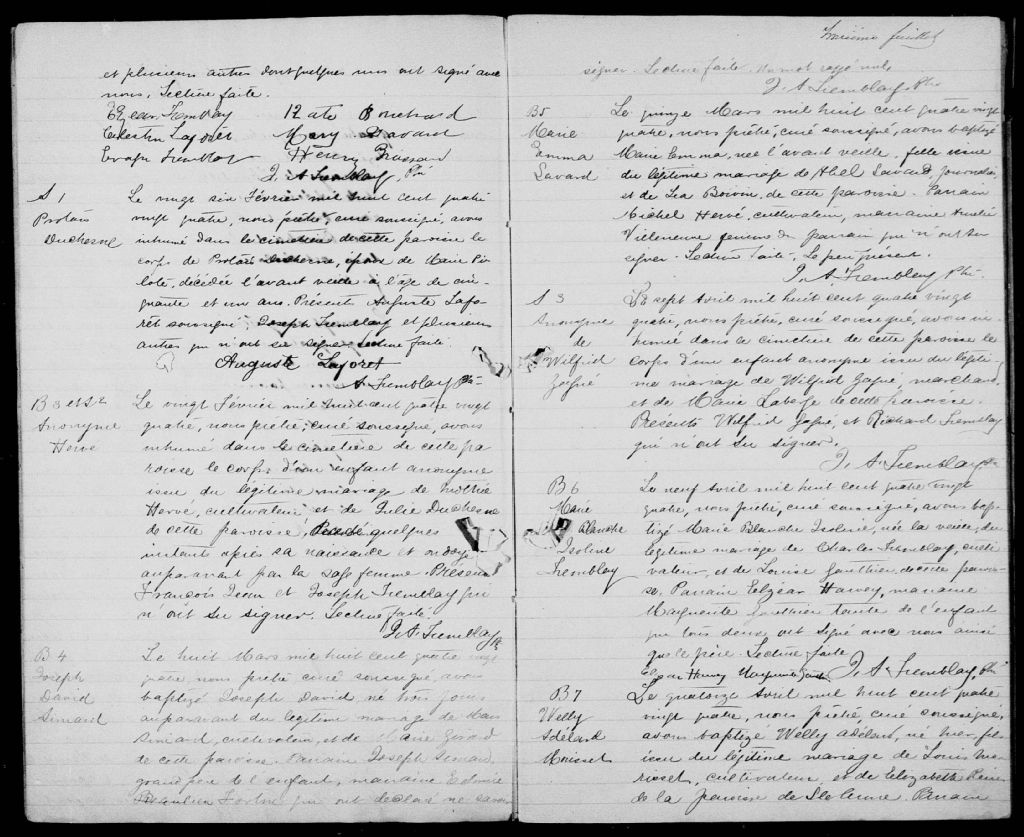 et plusieurs autres dont quelques uns ont signé avec
nous. Lecture faite.
Elzear Tremblay Bouchard
Celestin Laforet Mary Savard
Tremblay Henry Brassard
J. A. Tremblay, Ptre
S 1
Protais
Duchesne
Le vingt six Février mil huit cent quatre
vingt quatre, nous prêtre, curé soussigné, avons
inhumé dans le cimetière de cette paroisse le
corps de Protais Duchesne, époux de Marie Pi
lote, décédée l'avant veille à l'âge de cin
quante et un ans. Présent Auguste Lafo
rêt soussigné Joseph Tremblay et plusieurs
autres qui n'ont su signer Lecture faite.
Auguste Laforet
J. A. Tremblay Ptre
B 3 et S 2
Anonyme
Hervé
Le vingt Février mil huit cent quatre vingt
quatre, nous prêtre, curé soussigné, avons
inhumé dans le cimetière de cette pa
roisse le corps d'un enfant anonyme
issu du légitime mariage de
Hervé, cultivateur et de Julie Duchesne
de cette paroisse, quelques
instant après sa naissance et ondoyé
auparavant par la sage femme. Présens
François Jean et Joseph Tremblay qui
n'ont su signer. Lecture faite.
J. A. Tremblay Ptre
B 4
Joseph
David
Simard
Le huit Mars mil huit cent quatre vingt
quatre, nous prêtre curé soussigné, avons
baptizé Joseph David, né trois jours
auparavant du légitime mariage de
Simard, cultivateur, et de Marie Girard
de cette paroisse. Parrain Joseph Simard
grand père de l'enfant, marraine
Fortin qui ont déclaré ne savoir
Troisième feuillet
signer. Lecture faite. Un mot rayé nul
J. A. Tremblay Ptre
B 5
Marie
Emma
Savard
Le quinze Mars mil huit cent quatre vingt
quatre, nous prêtre, curé soussigné, avons baptizé
Marie Emma, née l'avant veille, fille issue
du légitime mariage de Abel Savard, journalier
et de Léa Boivin de cette paroisse. Parrain
Michel Hervé, cultivateur, marraine Amélie
Villeneuve femme du parrain qui n'ont su
signer. Lecture faite. Le père présent.
J. A. Tremblay Ptre
S 3
Anonyme
de
Wilfrid
Gagné
Le sept Avril mil huit cent quatre vingt
quatre, nous prêtre, curé soussigné, avons in
humé dans le cimetière de cette paroisse le
corps d'un enfant anonyme issu du légiti
me mariage de Wilfrid Gagné, marchand
et de Marie Laberge de cette paroisse.
Présents Wilfrid Gagné, et Richard Tremblay
qui n'ont su signer.
J. A. Tremblay Ptre
B 6
Marie
Blanche
Isoline
Tremblay
Le neuf Avril mil huit cent quatre vingt
quatre, nous prêtre, curé soussigné, avons bap
tizé Marie Blanche Isoline, née la veille, du
légitime mariage de Charles Tremblay, culti
vateur, et de Louise Gauthier de cette parois
se, Parrain Elzéar Harvey, marraine
Marguerite Gauthier tante de l'enfant
qui tous deux ont signé avec nous ainsi
que le père. Lecture faite
Elzear Harvey Marguerite Gauthier J. A. Tremblay, Ptre
B 7
Welly
Adélard
Morisset
Le quatorze Avril mil huit cent quatre
vingt quatre, nous prêtre, curé soussigné,
avons baptizé Welly Adélard, né hier, fils
issu du légitime mariage de Louis Mo
risset, cultivateur, et de Elizabeth
de la paroisse de Parrain